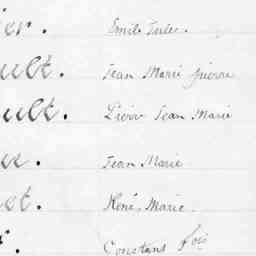 er. Emile
ult. Jean Marie pierre
ult. Pierre Jean Marie
. Jean Marie
et. René, Marie.
. Constans